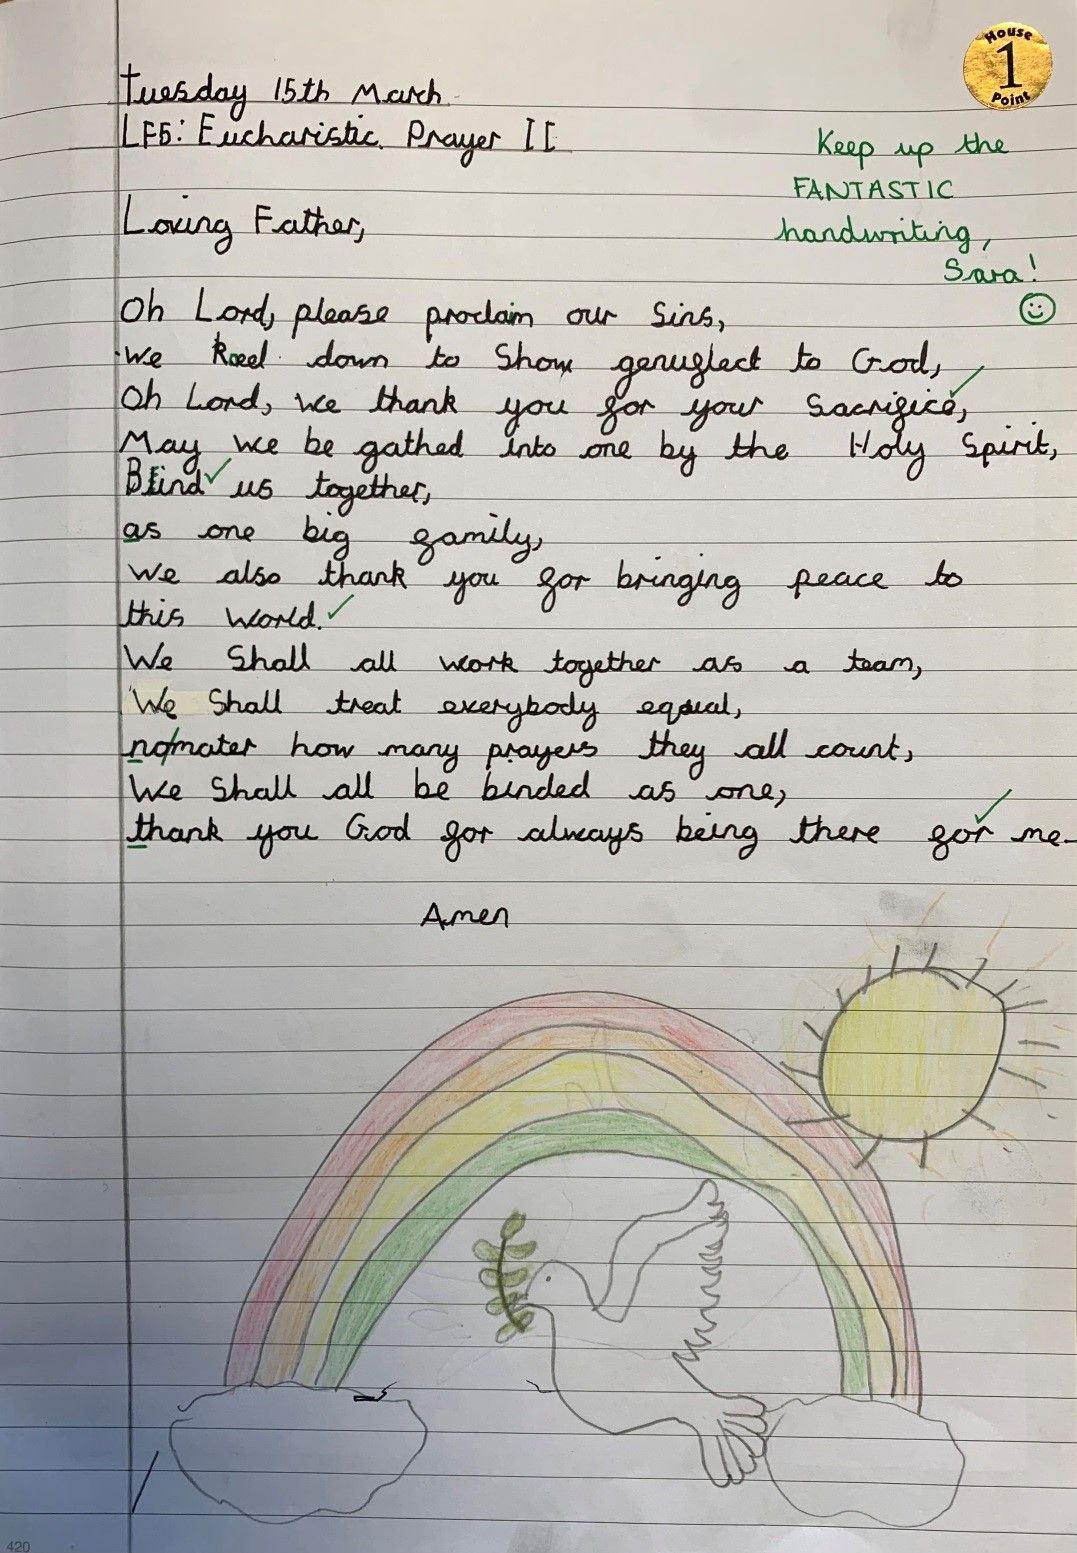 House
1
Point
Tuesday 15th March
LF5: Eucharistic Prayer II
Keep up the
FANTASTIC
handwriting,
Sara!
Loving Father,
Oh Lord, please proclaim our Sins,
We down to Show genuflect to God,
Oh Lord, we thank you for your Sacrifice,
May we be gathed into one by the Holy Spirit,
Bind us together,
as one big family,
We also thank you for bringing peace to
this World.
We Shall all work together as a team,
We Shall treat everybody equal,
no/mater how many prayers they all count,
We Shall all be binded as one,
thank you God for always being there for me.
Amen
420